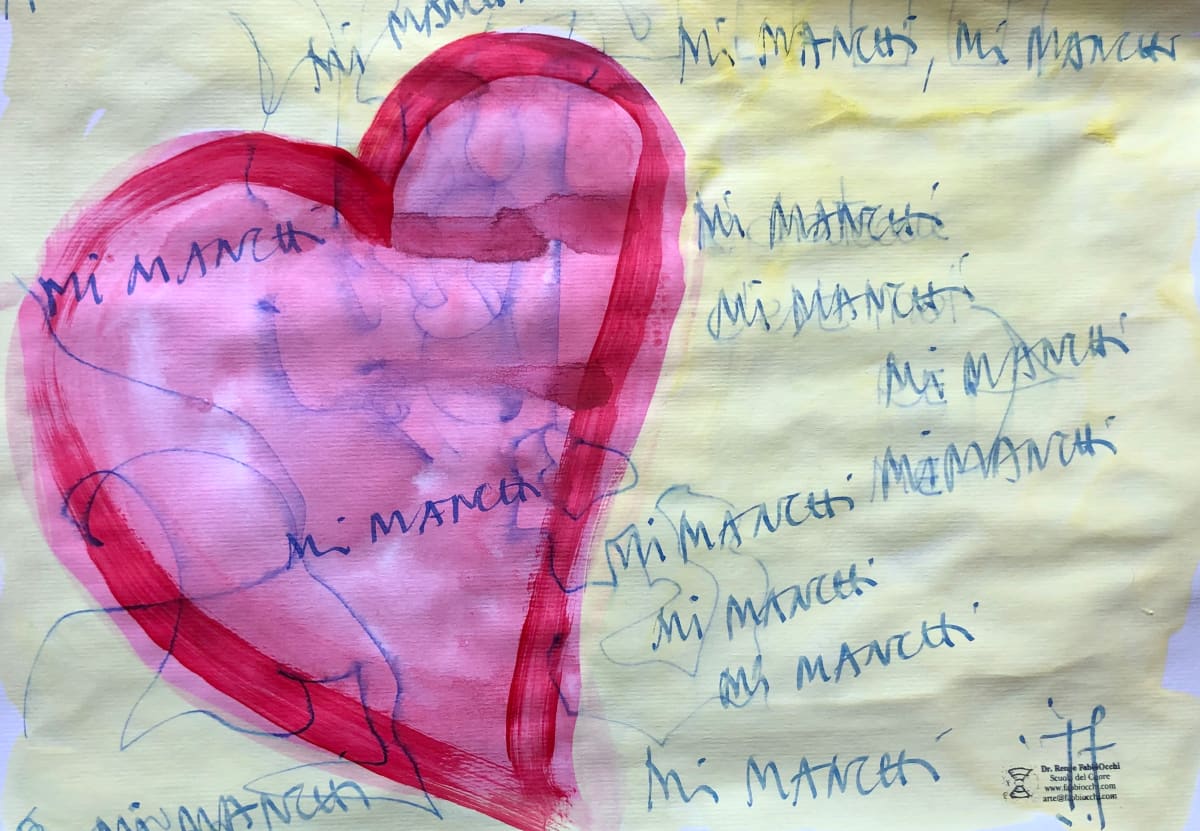 Mi MANCHi
Mi MANCHi, Mi MANCHi
Mi MANCHi
Mi MANCHi
Mi MANCHi
Mi MANCHi
Mi MANCHi
Mi MANCHi
Mi MANCHi
Mi MANCHi
Mi MANCHi
Mi MANCHi
Mi MANCHi
Mi MANCHi
Dr. Renée Fabbiocchi
Scuola del Cuore
www.fabbiocchi.com
arte@fabbiocchi.com